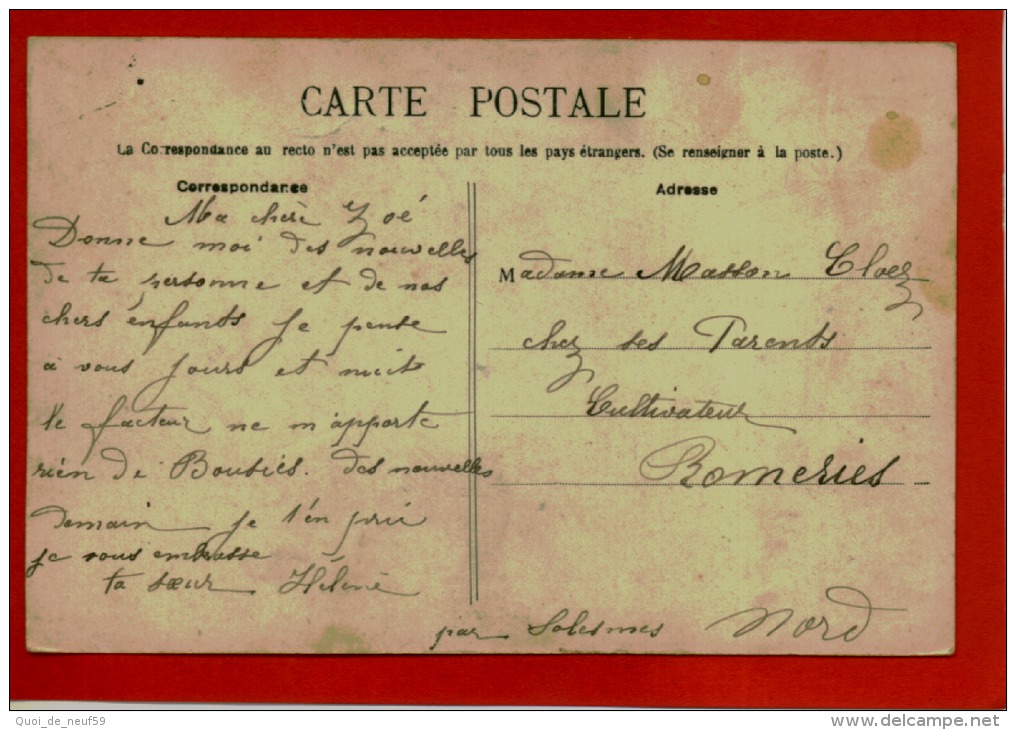 CARTE POSTALE
La Correspondance au recto n'est pas acceptée par tous les pays étrangers. (Se renseigner à la poste.)
Correspondance
Ma chère Zoé
Donne moi des nouvelles
de ta personne et de nos
chers enfants je pense
à vous jours et nuit
le facteur ne m'apporte
rien de Bousies. des nouvelles
demain je t'en prie
je vous embrasse
ta sœur Hélène
Adresse
Madame Masson Cloez
chez ses Parents
Cultivateur
Romeries
par Solesmes Nord
Quoi_de_neuf59
delcampe.net